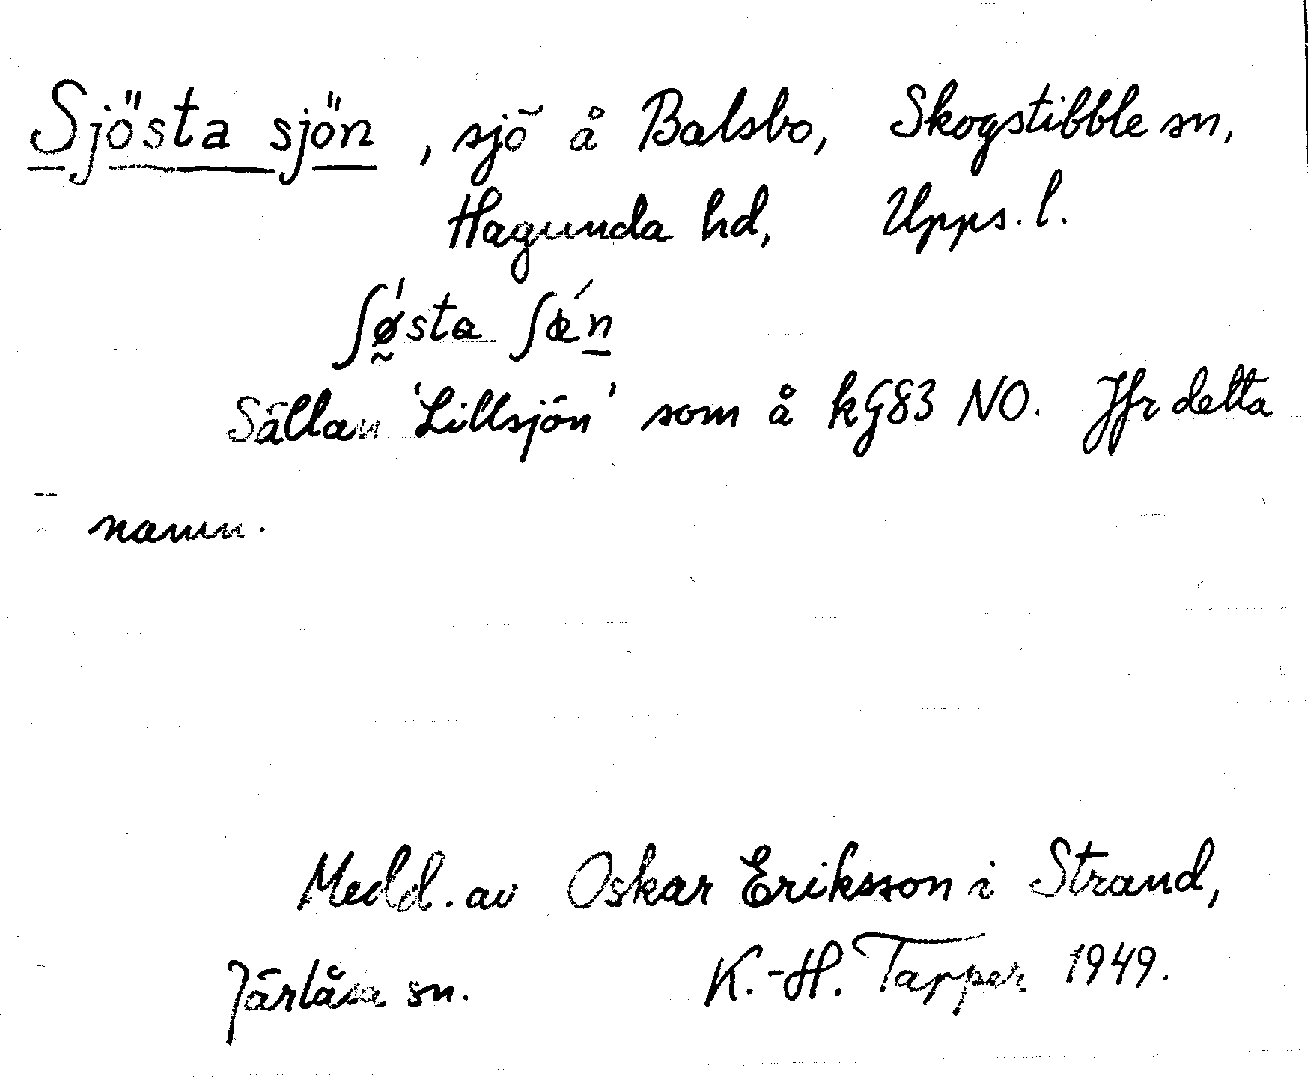 Sjösta sjön, sjö å Balsbo, Skogstibble sn,
Hagunda hd, Upps. l.
ʃǿ̰sta ʃœ́n
Sällan 'Lillsjön' som å kG83 NO. Jfr detta
namn.
Medd. av Oskar Eriksson i Strand,
Järlåsa sn. K.-H. Tapper 1949.